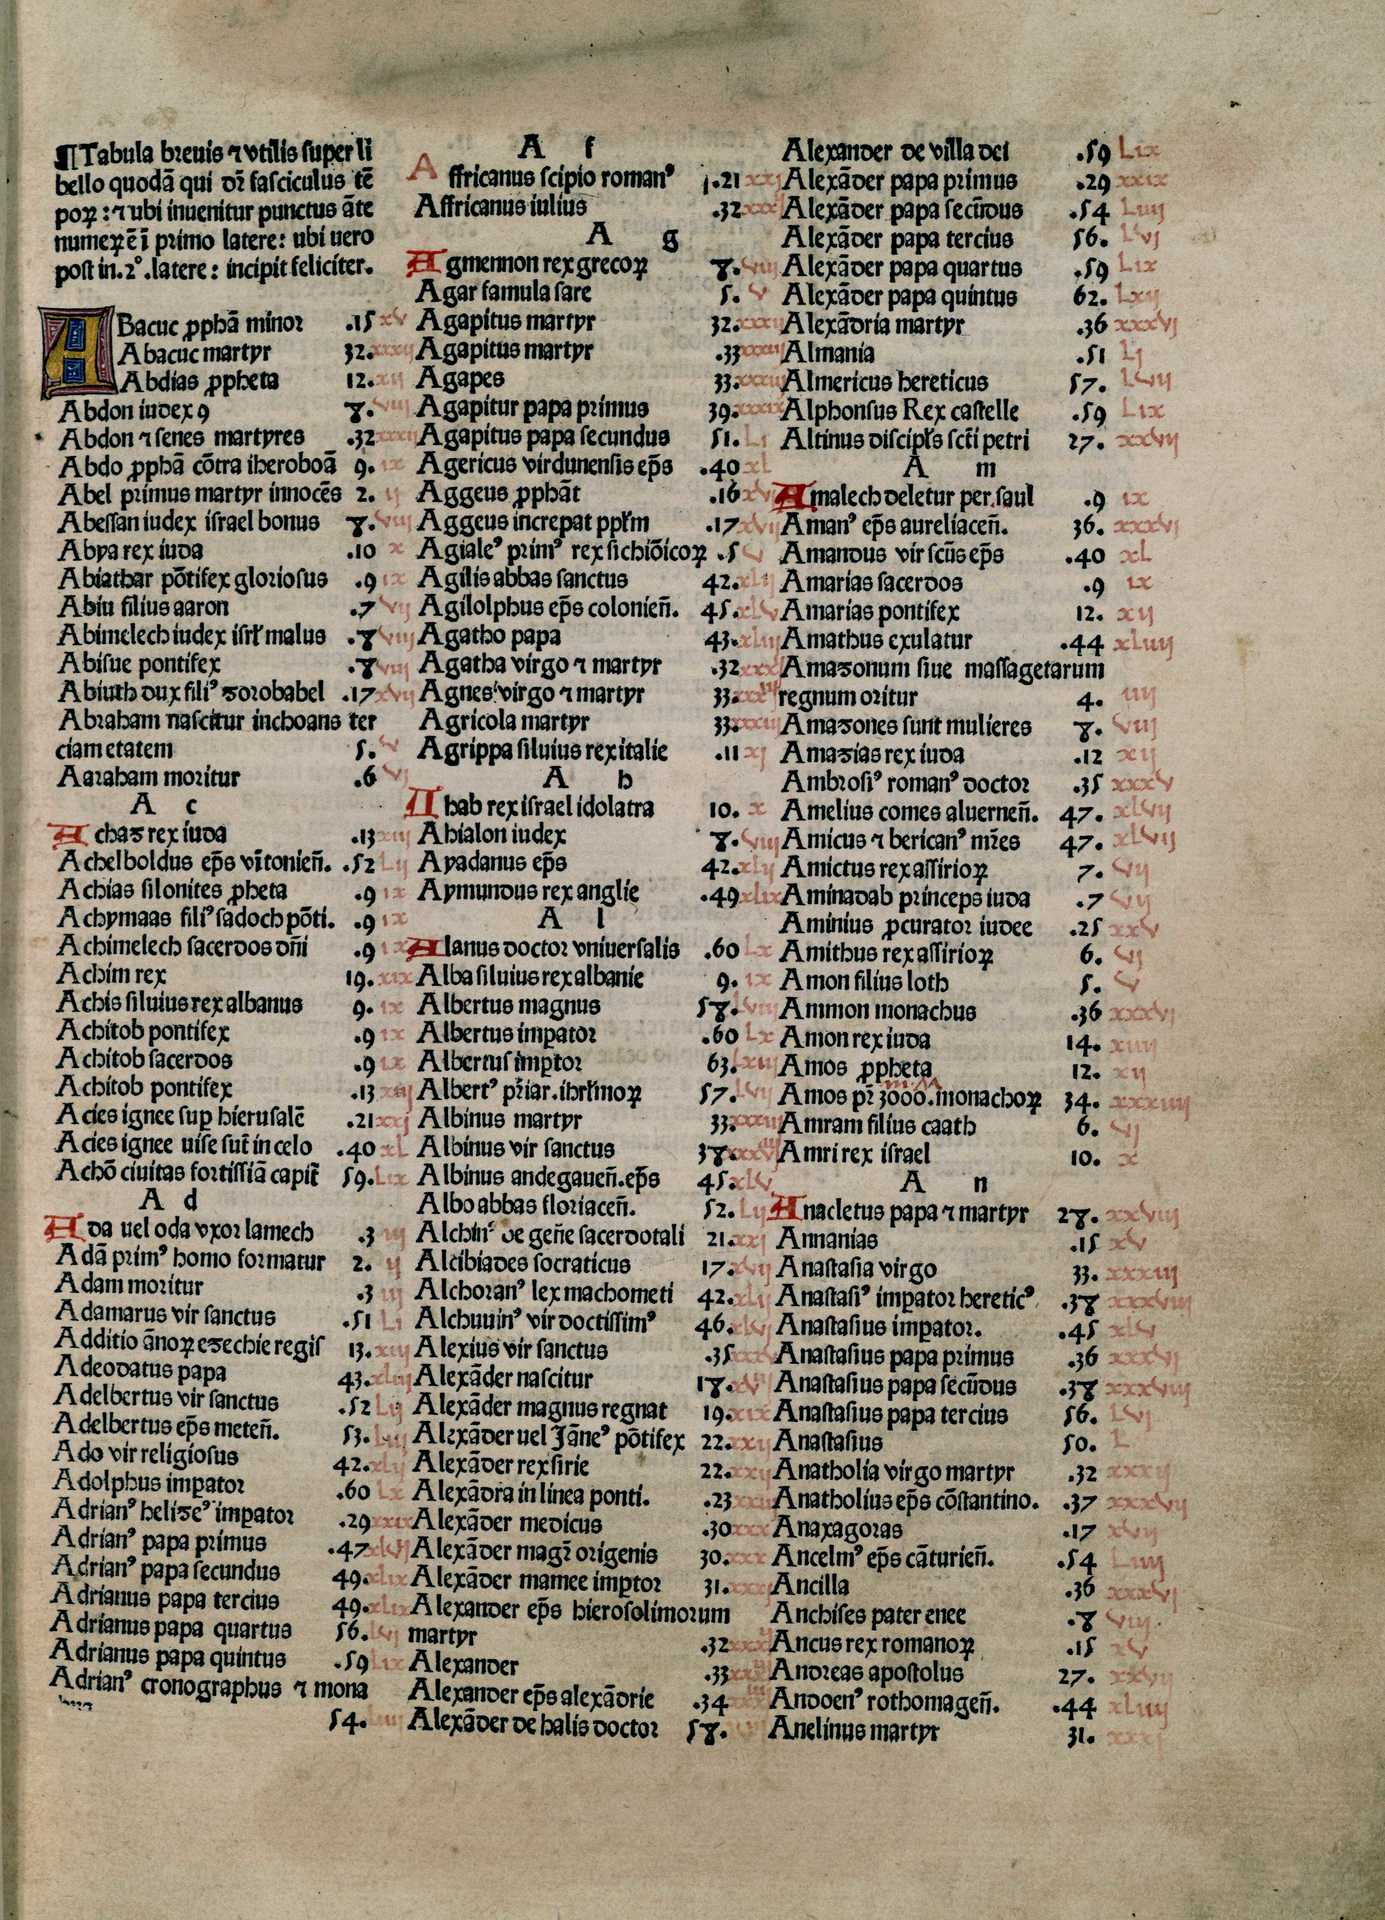 ¶Tabula breuis ⁊ vtilis super li
bello quodā qui dr̄ fasciculus tē
poꝝ : ⁊ ubi inuenitur punctus āte
numeꝝ ē ī primo latere: ubi uero
post in .2°. latere: incipit feliciter.
ABacuc ꝓphā minor .15 xv
Abacuc martyr 32. xxxij
Abdias ꝓpheta 12. xij
Abdon iudex 9 8. viij
Abdon ⁊ senes martyres .32 xxxij
Abdo ꝓphā cōtra iheroboā 9. ix
Abel primus martyr innocēs 2. ij
Abessan iudex israel bonus 8. viij
Abya rex iuda .10 x
Abiathar pōtifex gloriosus .9 ix
Abiu filius aaron .7 vij
Abimelech iudex isrl̄ malus .8 viij
Abisue pontifex .8 viij
Abiuth dux fili⁹ zorobabel .17 xvij
Abraham nascitur inchoans ter
ciam etatem 5. v
Aaraham moritur .6 vj
A c
Achaz rex iuda .13 xiij
Achelboldus ep̄s vītonien̄. .52 Lij
Achias silonites ꝓheta .9 ix
Achymaas fili⁹ sadoch pōti. .9 ix
Achimelech sacerdos dn̄i .9 ix
Achim rex 19. xix
Achis siluius rex albanus 9. ix
Achitob pontifex .9 ix
Achitob sacerdos .9 ix
Achitob pontifex .13 xiij
Acies ignee suꝑ hierusalē .21 xxj
Acies ignee uise sūt in celo .40 xl
Achō ciuitas fortissiā capit̄ 59. Lix
A d
Ada uel oda vxor lamech .3 iij
Adā prim⁹ homo formatur 2. ij
Adam moritur .3 iij
Adamarus vir sanctus .51 Li
Additio ānoꝝ ezechie regis 13. xiij
Adeodatus papa 43. xliij
Adelbertus vir sanctus .52 Lij
Adelbertus ep̄s meten̄. 53. Liij
Ado vir religiosus 42. xlij
Adolphus impator .60 Lx
Adrian⁹ helize⁹ imꝑator .29 xxix
Adrian⁹ papa primus .47 xlvij
Adrian⁹ papa secundus 49. xlix
Adrianus papa tercius 49. xlix
Adrianus papa quartus 56. Lvj
Adrianus papa quintus .59 Lix
Adrian⁹ cronographus ⁊ mona
54.
A f
Affricanus scipio roman⁹ .21 xxj
Affricanus iulius .32 xxxij
A g
Agmennon rex grecoꝝ 8. viij
Agar famula sare 5. v
Agapitus martyr 32. xxxij
Agapitus martyr .33 xxxiij
Agapes 33. xxxiij
Agapitur papa primus 39. xxxix
Agapitus papa secundus 51. Li
Agericus virdunensis ep̄s .40 xl
Aggeus ꝓphāt .16 xvj
Aggeus increpat ppl̄m .17 xvij
Agiale⁹ prim⁹ rex sichiōicoꝝ .5 v
Agilis abbas sanctus 42. xlij
Agilolphus ep̄s colonien̄. 45. xlv
Agatho papa 43. xliij
Agatha virgo ⁊ martyr .32 xxxij
Agnes virgo ⁊ martyr 33. xxxiij
Agricola martyr 33. xxxiij
Agrippa siluius rex italie .11 xj
A h
Ahab rex israel idolatra 10. x
Ahialon iudex 8. viij
Ayadanus ep̄s 42. xlij
Aymundus rex anglie .49 xlix
A l
Alanus doctor vniuersalis .60 Lx
Alba siluius rex albanie 9. ix
Albertus magnus 58. Lviij
Albertus impator .60 Lx
Albertus imptor 63. Lxiij
Albert⁹ pr̄iar. ihrl̄moꝝ 57. Lvij
Albinus martyr 33. xxxiij
Albinus vir sanctus 38. xxxviij
Albinus andegauen̄. ep̄s 45. xlv
Albo abbas floriacen̄. 52. Lij
Alchin⁹ de gen̄e sacerdotali 21. xxj
Alcibiades socraticus 17. xvij
Alchoran⁹ lex machometi 42. xlij
Alchuuin⁹ vir doctissim⁹ 46. xlvj
Alexius vir sanctus .35 xxxv
Alexāder nascitur 18. xviij
Alexāder magnus regnat 19. xix
Alexāder uel Jāne⁹ pōtifex 22. xxij
Alexāder rex sirie 22. xxij
Alexādra in linea ponti. .23 xxiij
Alexāder medicus .30 xxx
Alexāder magr̄ origenis 30. xxx
Alexāder mamee imptor 31. xxxj
Alexander ep̄s hierosolimorum
martyr .32 xxxij
Alexander .33 xxxiij
Alexander ep̄s alexādrie .34
Alexāder de halis doctor 58.
Alexander de villa dei .59 Lix
Alexāder papa primus .29 xxix
Alexāder papa secūdus .54 Liiij
Alexāder papa tercius 56. Lvj
Alexāder papa quartus .59 Lix
Alexāder papa quintus 62. Lxij
Alexādria martyr .36 xxxvj
Almania .51 Lj
Almericus hereticus 57. Lvij
Alphonsus Rex castelle .59 Lix
Altinus discipl̄s sct̄i petri 27. xxvij
A m
Amalech deletur per. saul .9 ix
Aman⁹ ep̄s aureliacen̄. 36. xxxvj
Amandus vir scūs ep̄s .40 xL
Amarias sacerdos .9 ix
Amarias pontifex 12. xij
Amathus exulatur .44 xLiiij
Amazonum siue massagetarum
regnum oritur 4. iiij
Amazones sunt mulieres 8. viij
Amazias rex iuda .12 xij
Ambrosi⁹ roman⁹ doctor .35 xxxv
Amelius comes aluernen̄. 47. xLvij
Amicus ⁊ berican⁹ mr̄es 47. xLvij
Amictus rex assirioꝝ 7. vij
Aminadab princeps iuda .7 vij
Aminius ꝓcurator iudee .25 xxv
Amithus rex assirioꝝ 6. vj
Amon filius loth 5. v
Ammon monachus .36 xxxvj
Amon rex iuda 14. xiiij
Amos ꝓpheta 12. xij
Amos pr̄ 3000. monachoꝝ 34. xxxiiij
Amram filius caath 6. vj
Amri rex israel 10. x
A n
Anacletus papa ⁊ martyr 28. xxviij
Annanias .15 xv
Anastasia virgo 33. xxxiij
Anastasi⁹ imꝑator heretic⁹ .38 xxxviij
Anastasius imꝑator. .45 xlv
Anastasius papa primus .36 xxxvj
Anastasius papa secūdus .38 xxxviij
Anastasius papa tercius 56. Lvj
Anastasius 50. L
Anatholia virgo martyr .32 xxxij
Anatholius ep̄s cōstantino. .37 xxxvij
Anaxagoras .17 xvij
Ancelm⁹ ep̄s cāturien̄. .54 Liiij
Ancilla .36 xxxvj
Anchises pater enee .8 viij
Ancus rex romanoꝝ .15 xv
Andreas apostolus 27. xxvij
Andoen⁹ rothomagen̄. .44 xLiiij
Anelinus martyr 31. xxxj